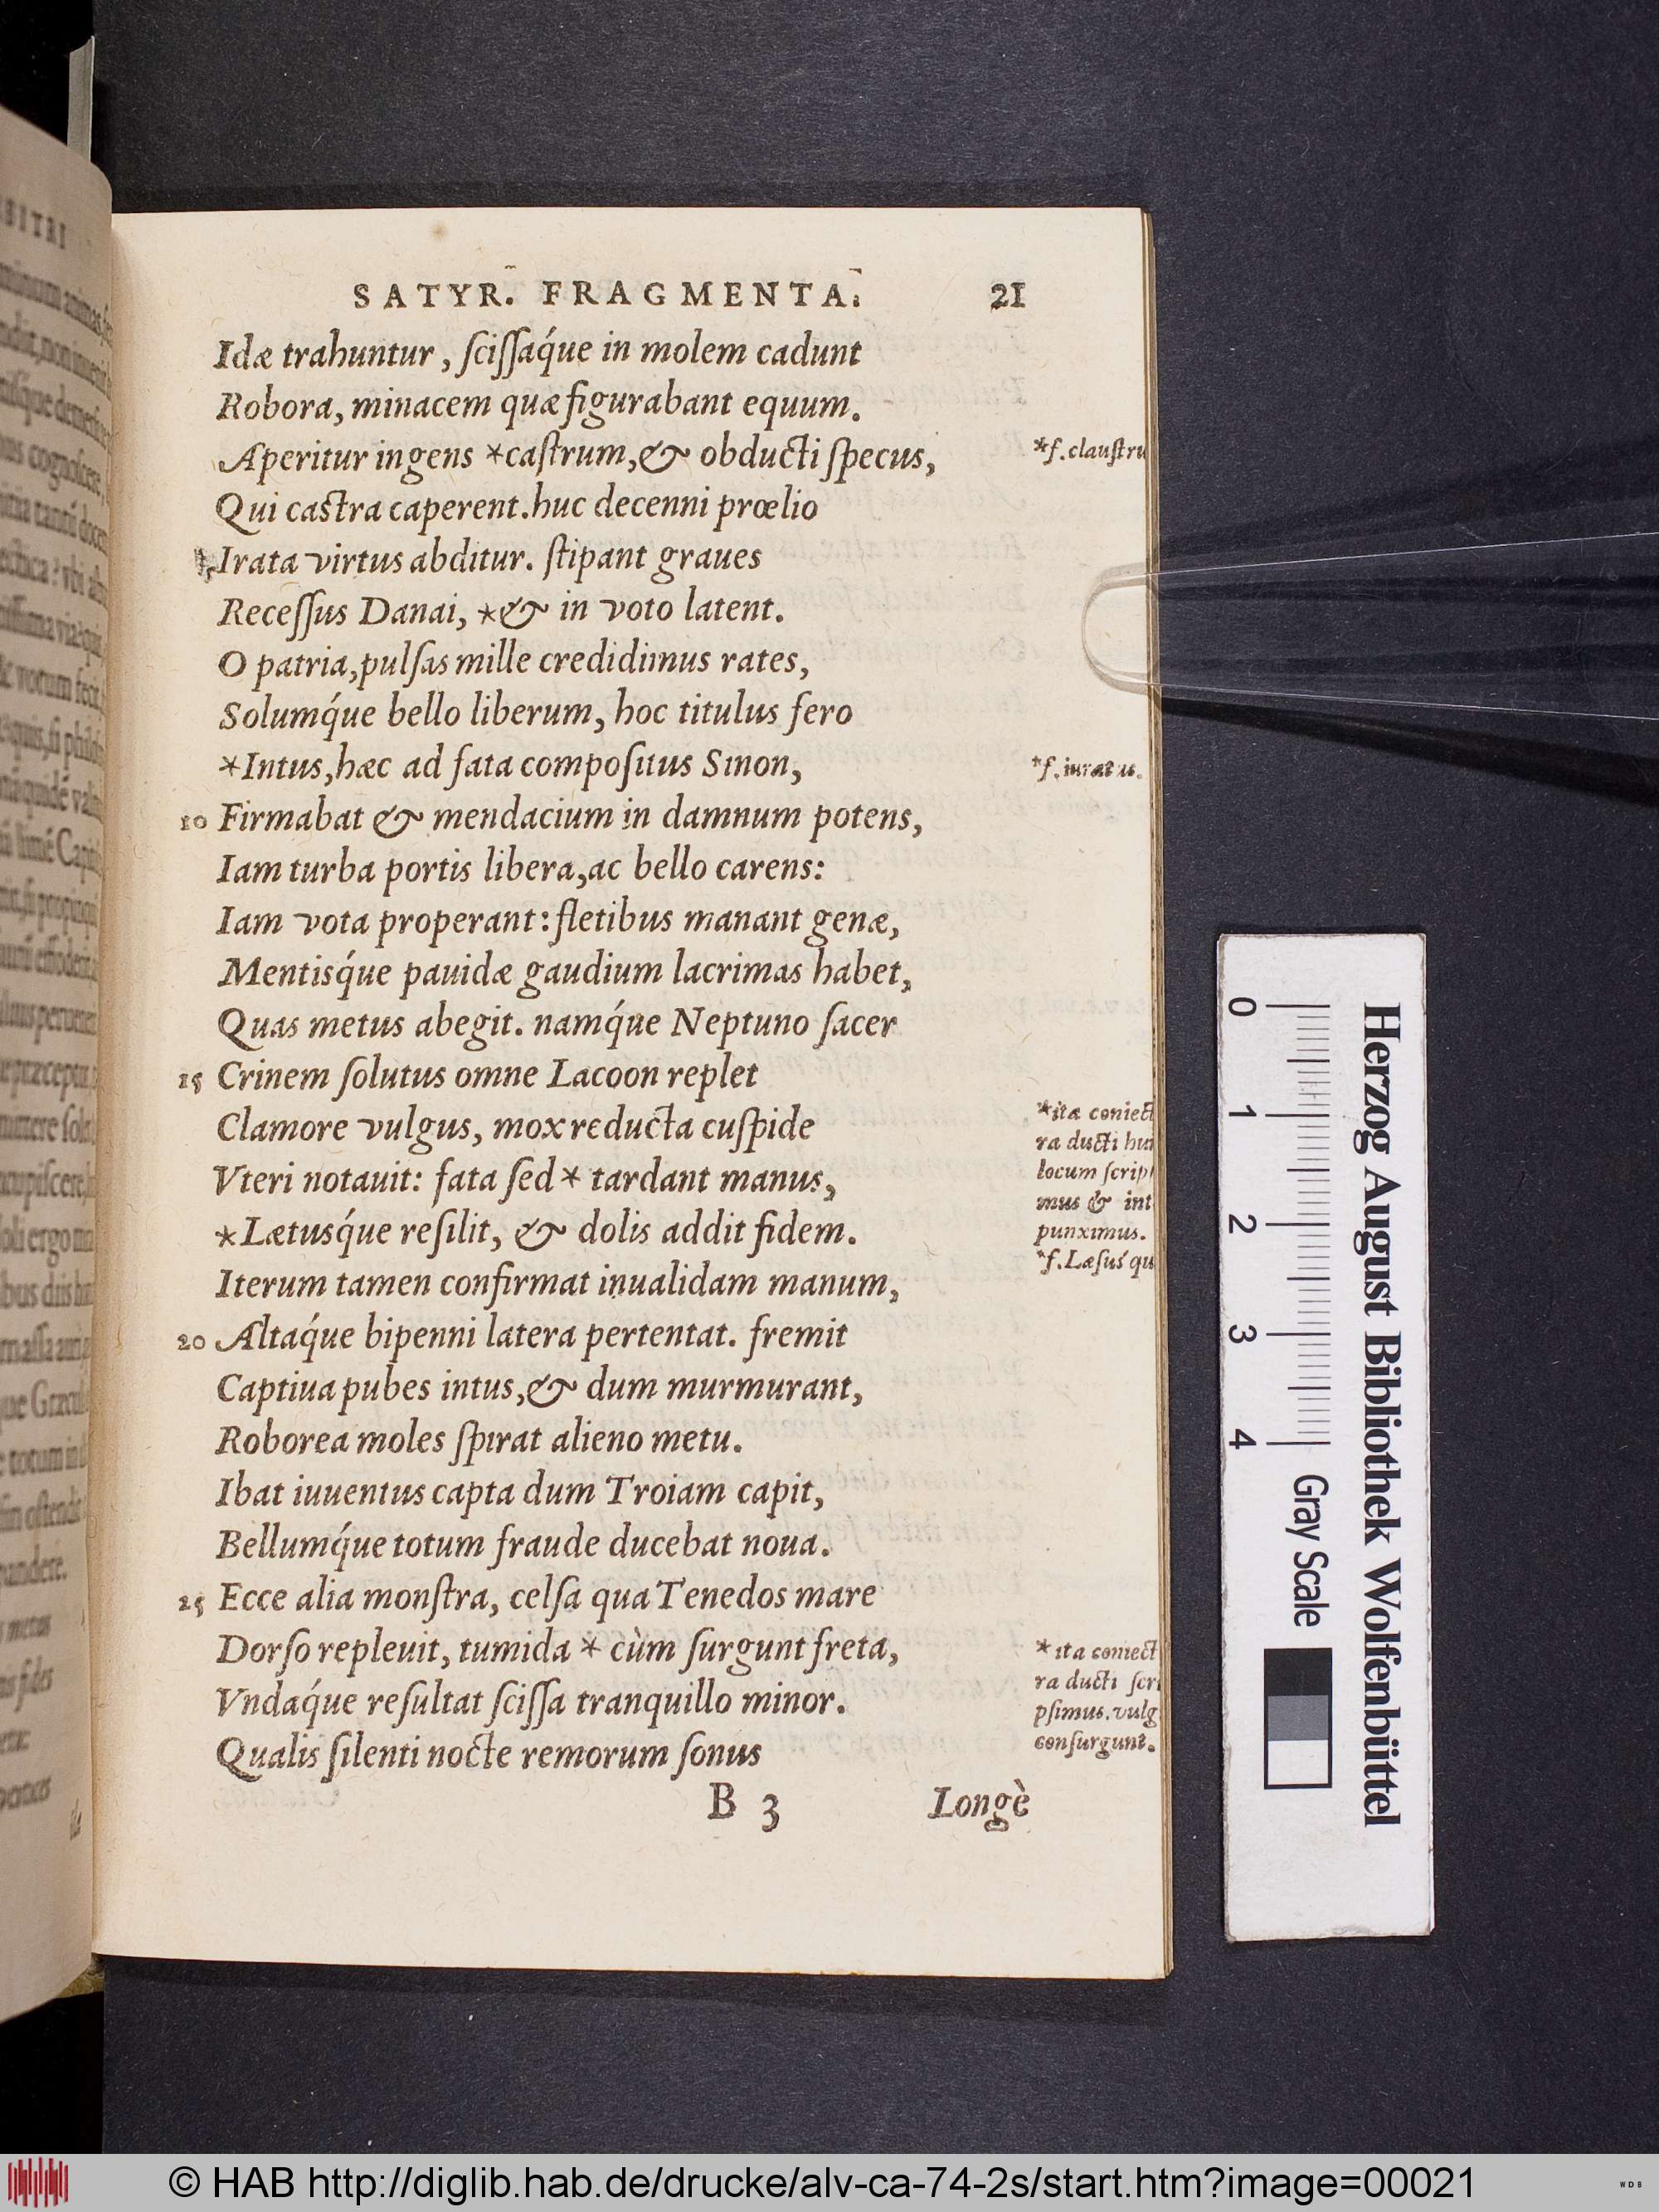 SATYR. FRAGMENTA. 21
Idæ trahuntur, ſciſſáque in molem cadunt
Robora, minacem quæ figurabant equum.
Aperitur ingens *caſtrum, & obducti ſpecus,
*f. clauſtru
Qui caſtra caperent. huc decenni prœlio
Irata virtus abditur. ſtipant graues
Receſſus Danai, *& in voto latent.
O patria, pulſas mille credidimus rates,
Solumq́ue bello liberum, hoc titulus fero
*Intus, hæc ad fata compoſitus Sinon,
*f. iuratus.
10 Firmabat & mendacium in damnum potens,
Iam turba portis libera, ac bello carens:
Iam vota properant: fletibus manant genæ,
Mentisq́ue pauidæ gaudium lacrimas habet,
Quas metus abegit. namq́ue Neptuno ſacer
15 Crinem ſolutus omne Lacoon replet
Clamore vulgus, mox reducta cuſpide
*ita coniect
ra ducti hun
Vteri notauit: fata ſed * tardant manus,
locum ſcrip
mus & int
*Lætusq́ue reſilit, & dolis addit fidem.
punximus.
*f. Læſusq́ qu
Iterum tamen confirmat inualidam manum,
20 Altaq́ue bipenni latera pertentat. fremit
Captiua pubes intus, & dum murmurant,
Roborea moles ſpirat alieno metu.
Ibat iuuentus capta dum Troiam capit,
Bellumq́ue totum fraude ducebat noua.
25 Ecce alia monſtra, celſa qua Tenedos mare
Dorſo repleuit, tumida * cùm ſurgunt freta,
* ita coniect
ra ducti ſcri
Vndaq́ue reſultat ſciſſa tranquillo minor.
pſimus. vulg
Qualis ſilenti nocte remorum ſonus
conſurgunt.
B 3 Longè
Herzog August Bibliothek Wolfenbüttel
0 1 2 3 4 Gray Scale
© HAB http://diglib.hab.de/drucke/alv-ca-74-2s/start.htm?image=00021
WDB